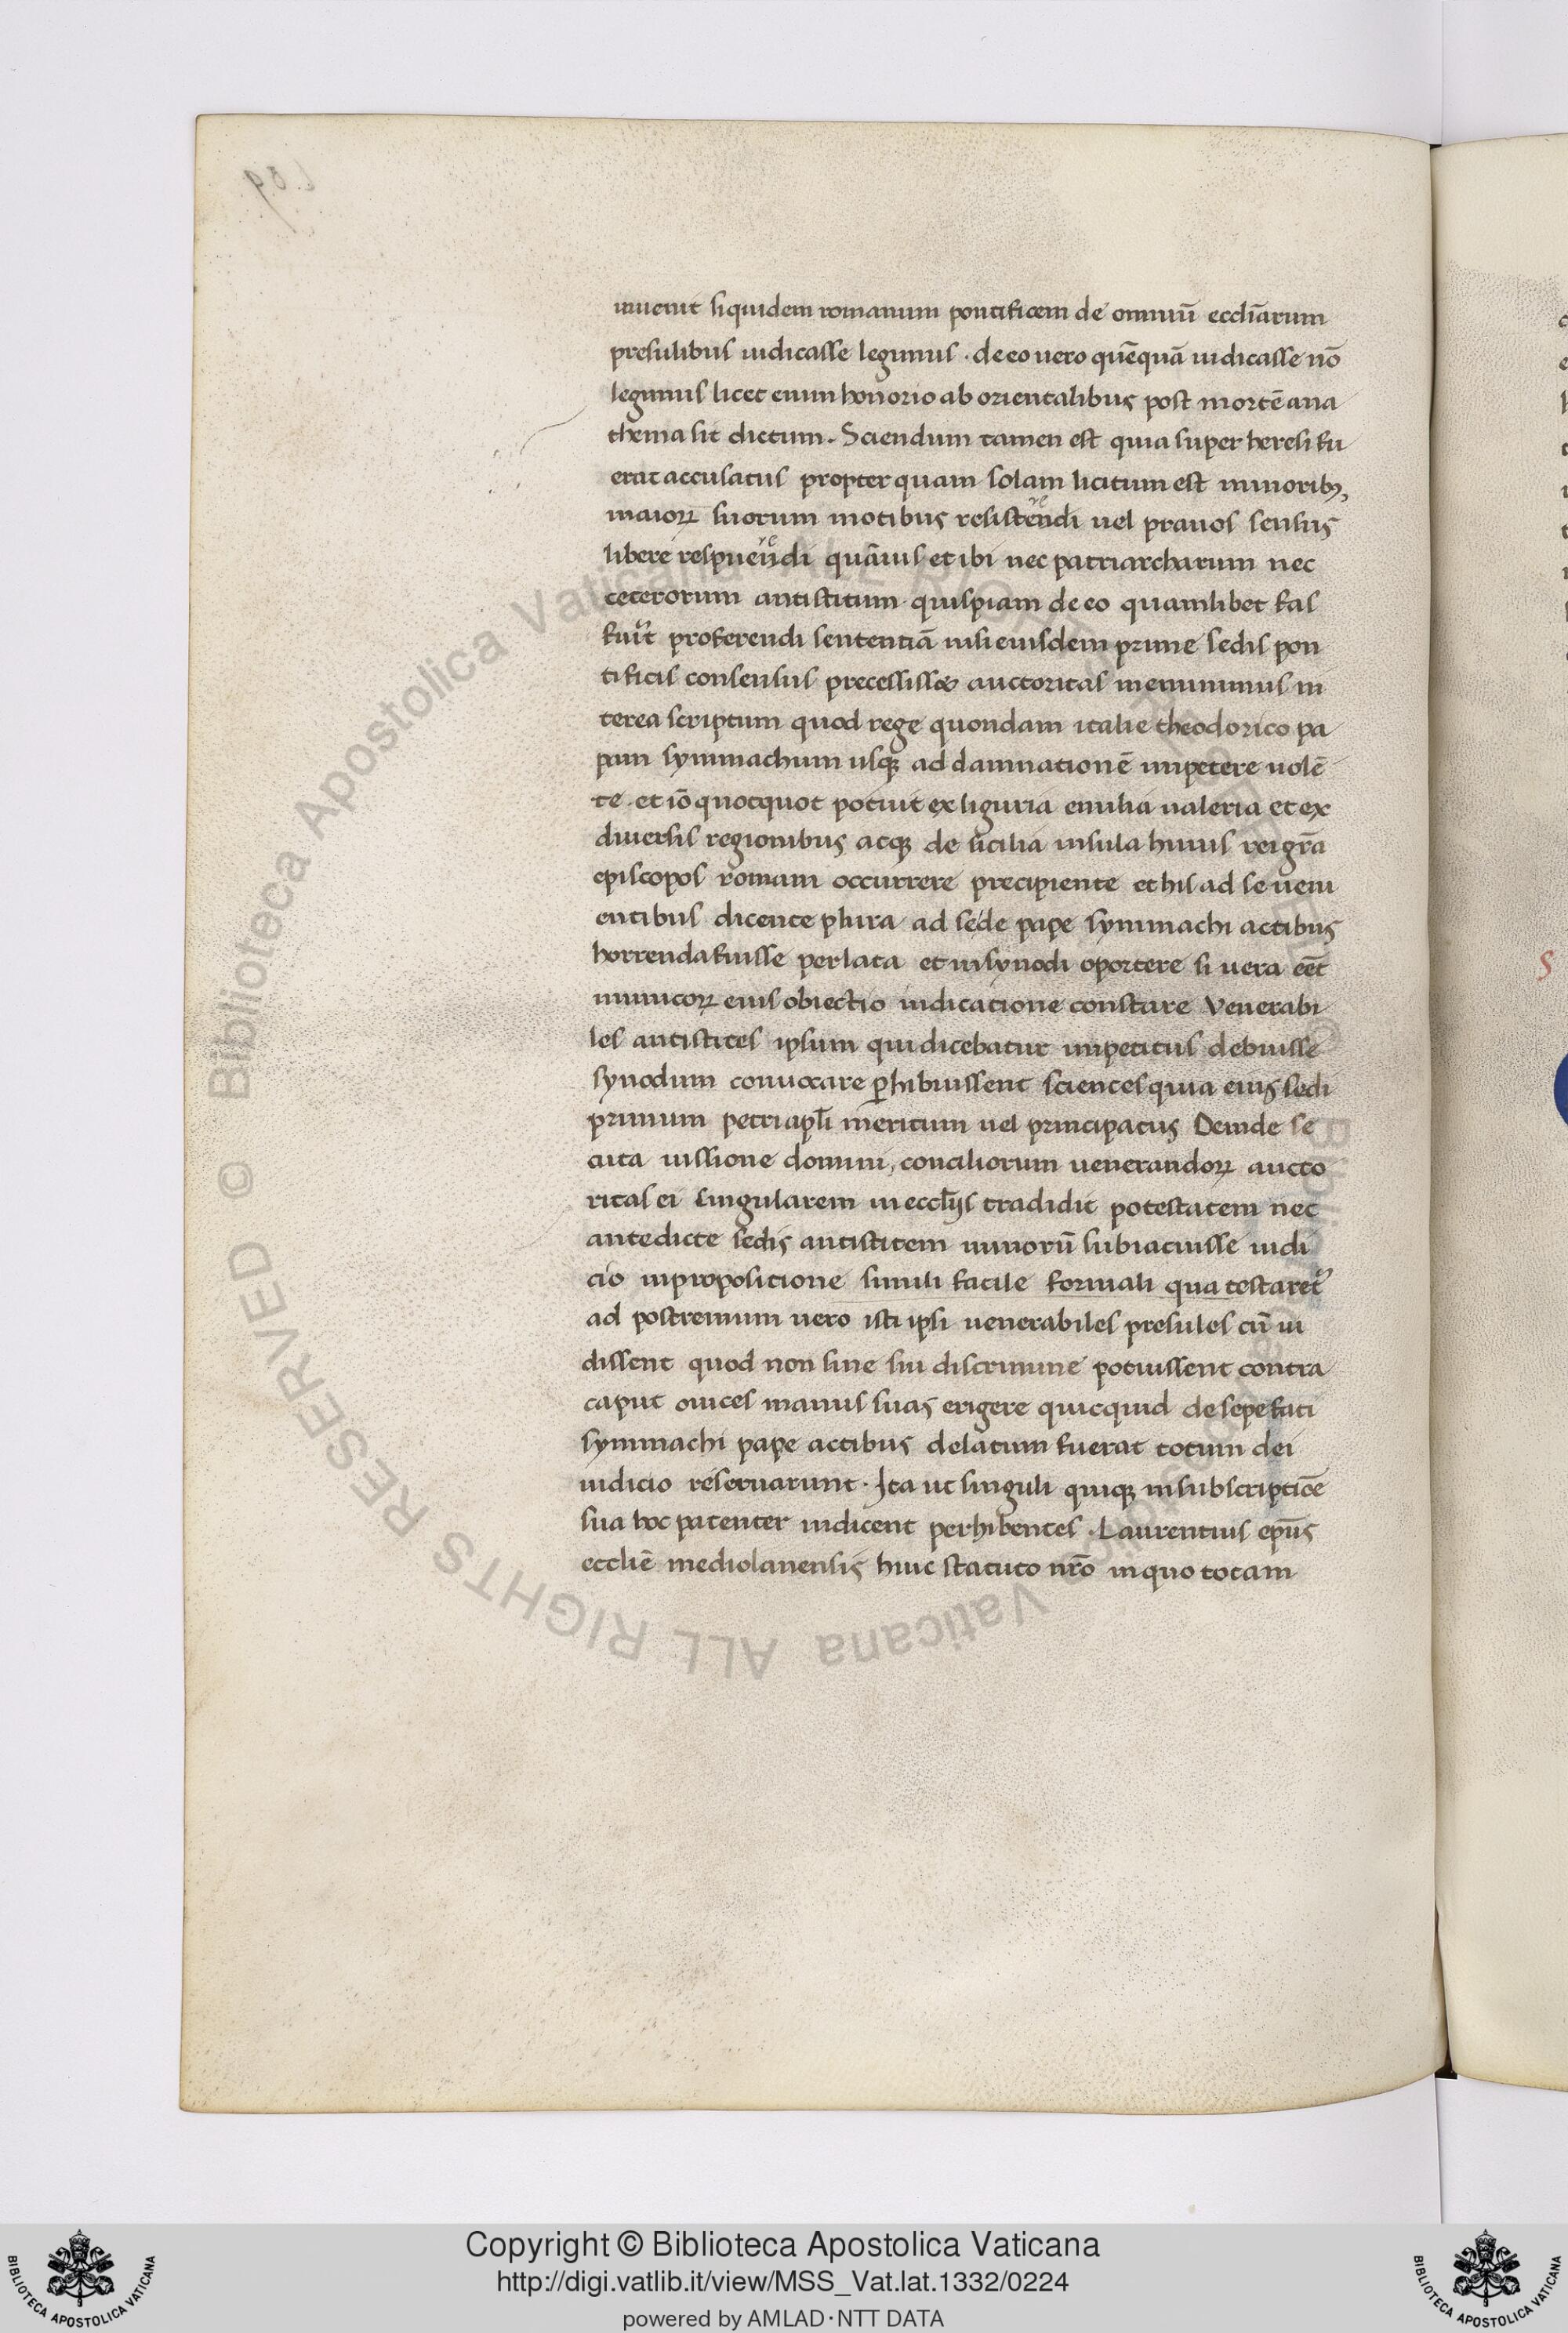 inuenit siquidem romanum pontificem de omniū eccl̄iarum
presulibus iudicasse legimus · de eo uero quēquā iudicasse nō
legimus licet enim honorio ab orientalibus post mortē ana
thema sit dictum · Sciendum tamen est quia super heresi fu
erat accusatus propter quam solam licitum est minoribꝫ
maioꝝ suorum motibus resistendi uel prauos sensus
libere respuendi quāuis et ibi nec patriarcharum nec
ceterorum antistitum quispiam de eo quamlibet fas
proferendi sententiā nisi eiusdem prime sedis pon
tificis consensus precessisset auctoritas meminimus in
terea scriptum quod rege quondam italie theodorico pa
pam symmachum usqꝫ ad damnationē impetere uolē
te · et iō quotquot potuit ex liguria emilia ualeria et ex
diuersis regionibus atqꝫ de sicilia insula huius rei gr̄a
episcopos romam occurrere precipiente et his ad se ueni
entibus dicente plura ad sede pape symmachi actibus
horrenda fuisse perlata et in synodi oportere si uera eēt
inimicoꝝ eius obiectio iudicatione constare Venerabi
les antistites ipsum qui dicebatur impetitus debuisse
synodum conuocare ꝑhibuissent scientes quia eius sedi
primum petri apl̄i meritum uel principatus Deinde se
cuta iussione domini, conciliorum uenerandoꝝ aucto
ritas ei singularem in eccl̄ijs tradidit potestatem nec
antedicte sedis antistitem minorū subiacuisse iudi
cio in propositione simili facile formali qua testaret᷑
ad postremum uero isti ipsi uenerabiles presules cū ui
dissent quod non sine sui discrimine potuissent contra
caput ouices manus suas erigere quicquid de sepefati
symmachi pape actibus delatum fuerat totum dei
iudicio reseruarunt · Ita ut singuli quiqꝫ in subscriptiōe
sua hoc patenter indicent perhibentes · Laurentius ep̄us
eccliē mediolanensis huic statuto nr̄o in quo totam
S
Biblioteca Apostolica Vaticana ALL RIGHTS RESERVED ©
Copyright © Biblioteca Apostolica Vaticana
http://digi.vatlib.it/view/MSS_Vat.lat.1332/0224
powered by AMLAD·NTT DATA
BIBLIOTECA APOSTOLICA VATICANA
BIBLIOTECA APOSTOLICA VATICANA